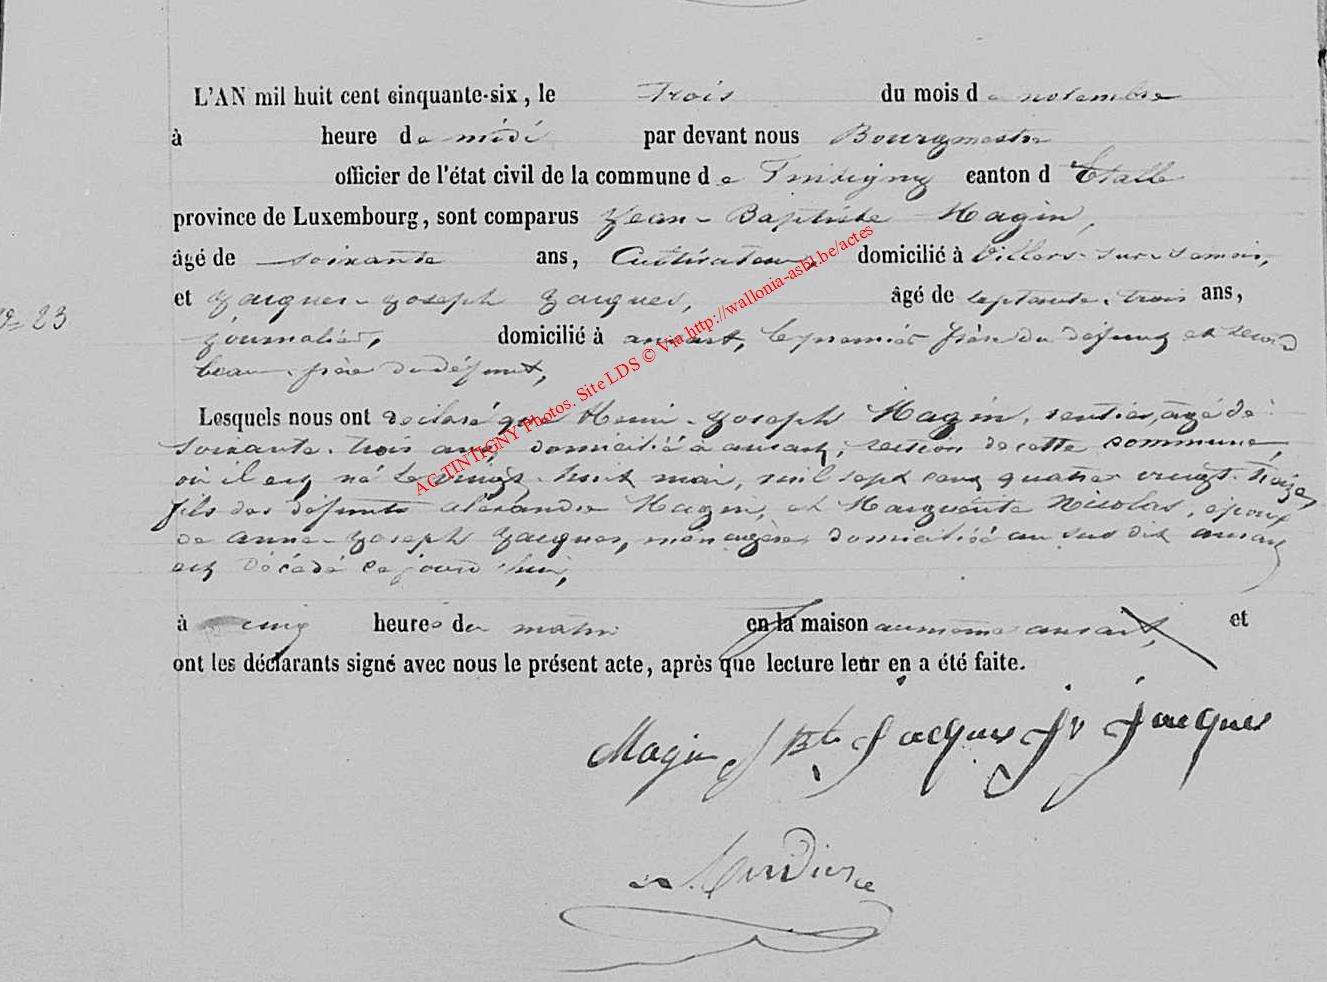 L'AN mil huit cent cinquante-six, le Trois du mois de novembre
à heure de midi par devant nous Bourgmestre
officier de l'état civil de la commune de Tintigny canton d'Etalle
province de Luxembourg, sont comparus Jean-Baptiste Magin,
âgé de soixante ans, Cultivateur, domicilié à Villers-sur-Semois,
et Jacques-Joseph Jacques, âgé de septante-trois ans,
No 23
journalier, domicilié à ansart, le premier frère du défunt et second
beau-frère du défunt,
Lesquels nous ont déclaré que Henri-Joseph Magin, rentier, âgé de
soixante-trois ans, domicilié à ansart, section de cette commune,
où il est né le vingt-huit mai, mil sept cent quatre vingt-treize,
fils des défunts alexandre Magin, et Marguerite Nicolas, époux
de anne-Joseph Jacques, ménagère domiciliée au sus dit ansart
est décédé ce jourd'hui,
à cinq heures du matin en la maison au même ansart, et
ont les déclarants signé avec nous le présent acte, après que lecture leur en a été faite.
Magin J Bte Jacques Jh Jacques
AG TINTIGNY Photos. Site LDS © Via http://wallonia-asbl.be/actes